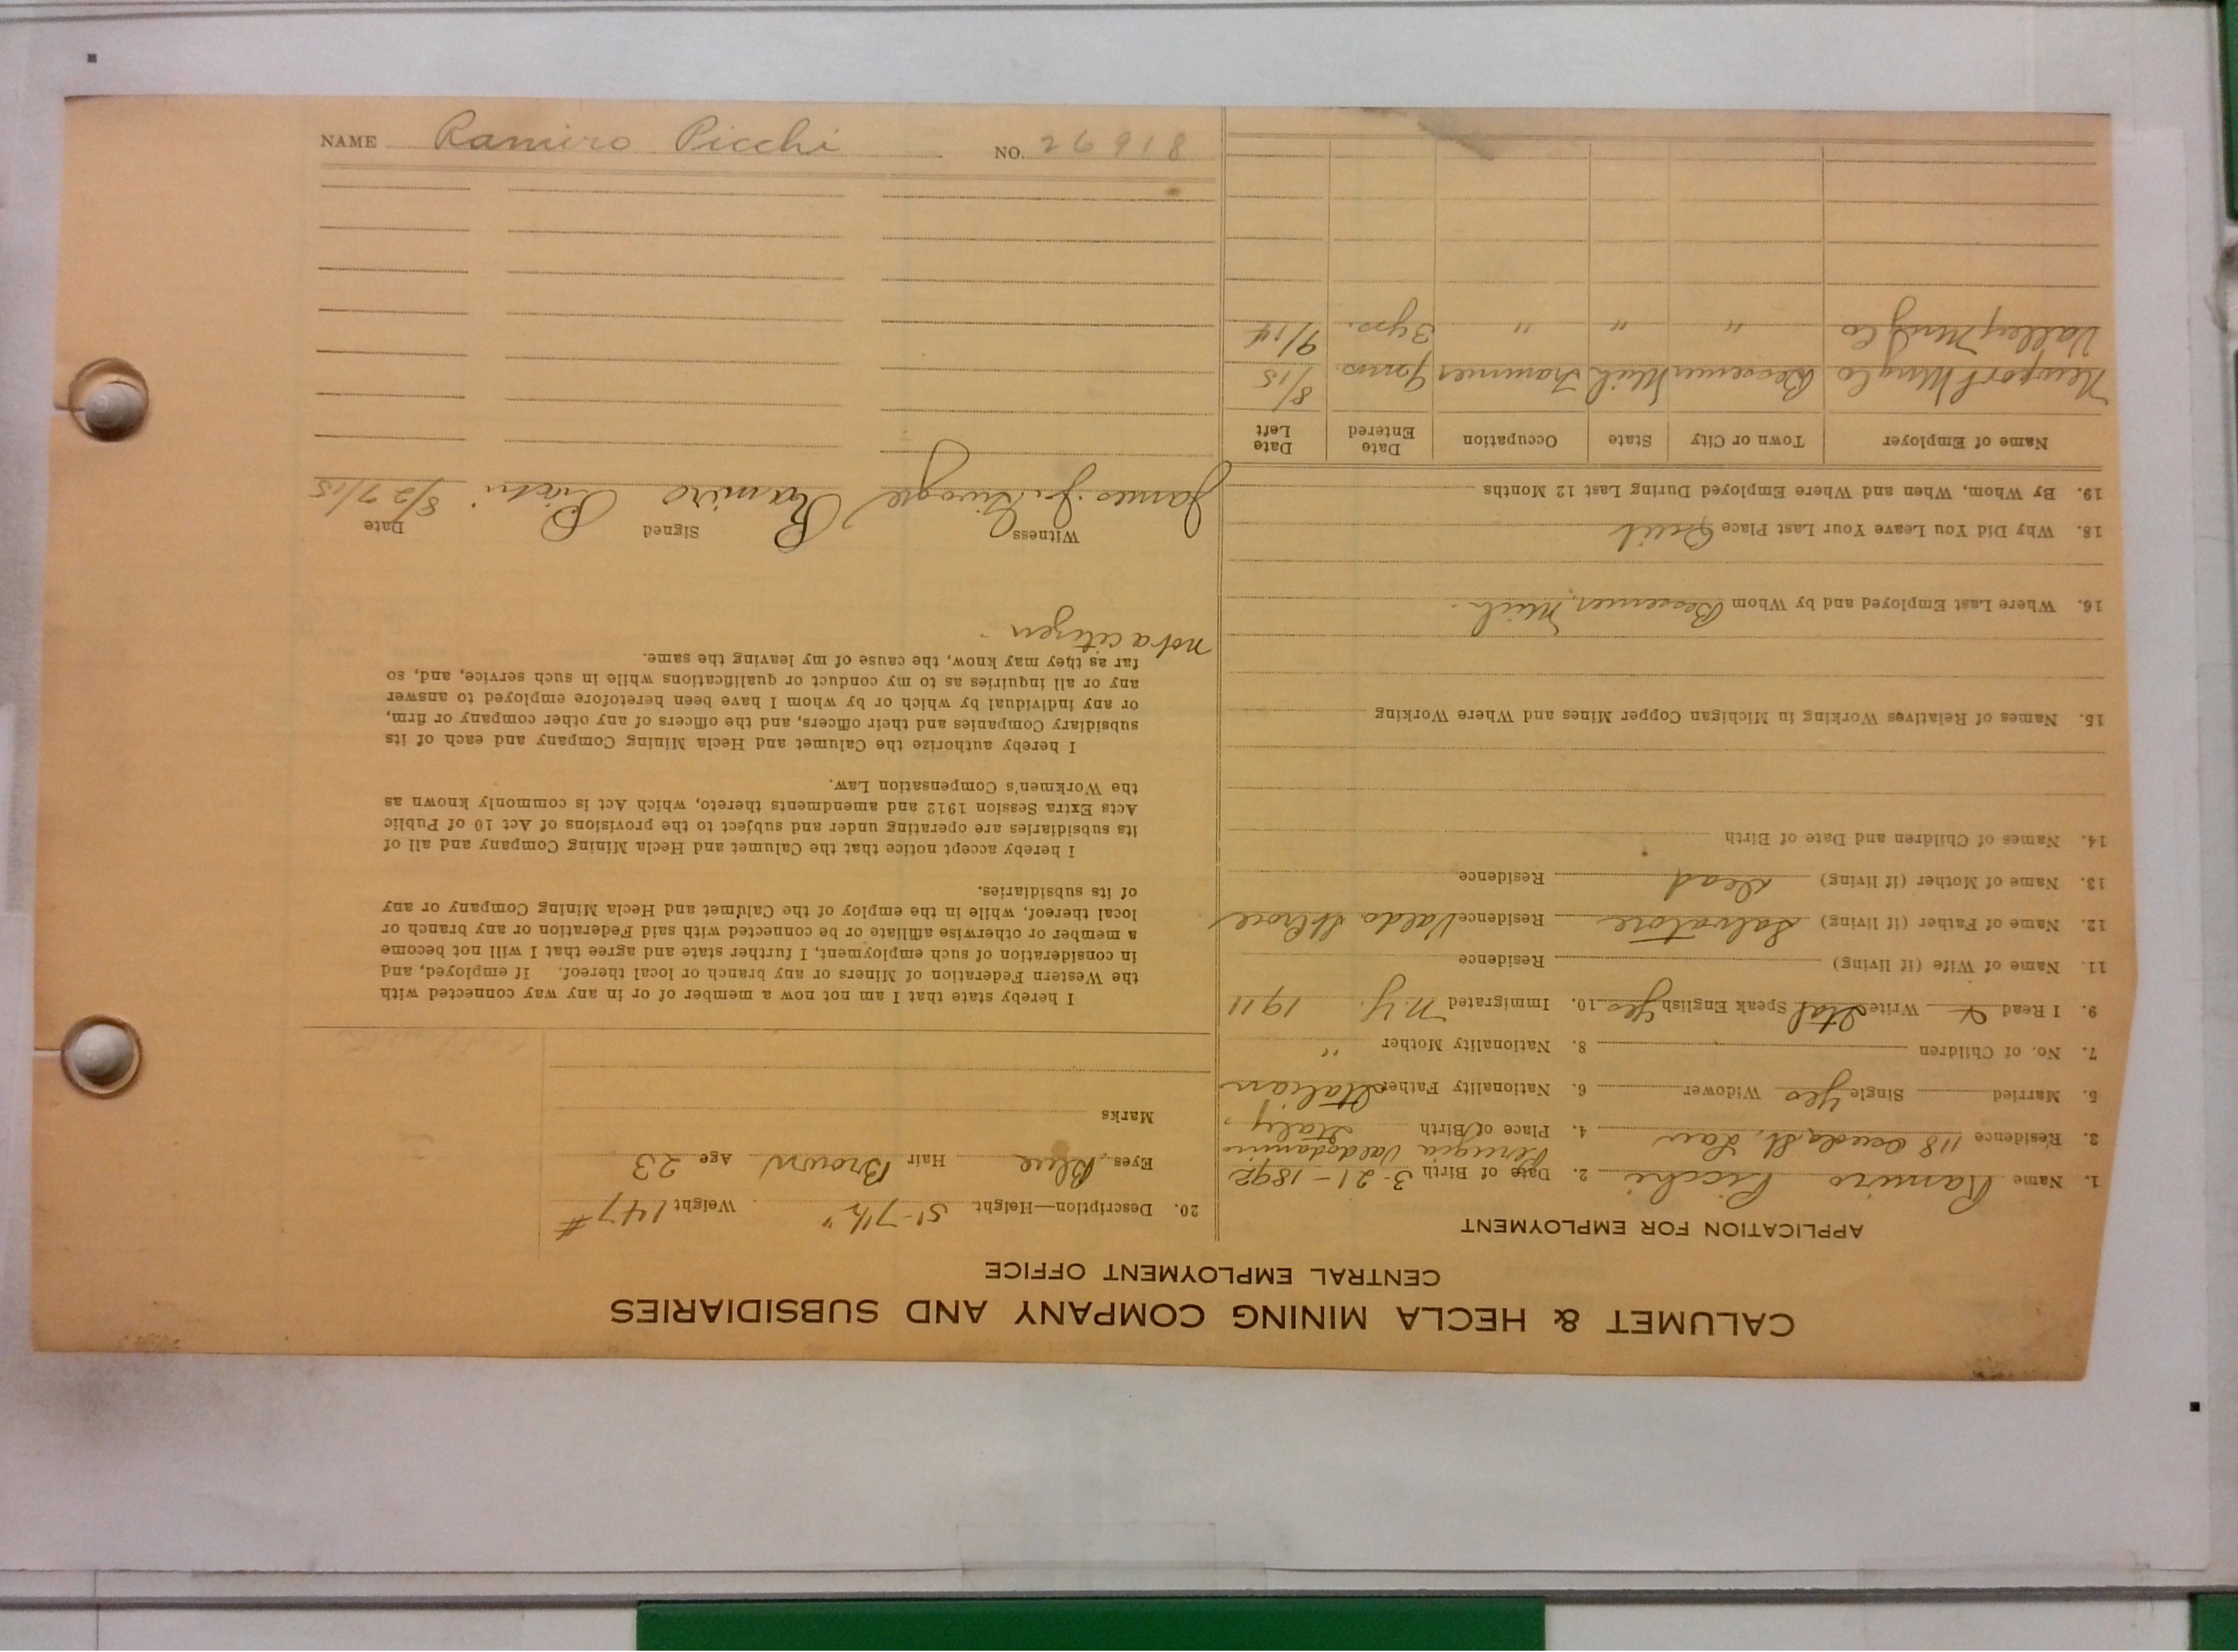 CALUMET & HECLA MINING COMPANY AND SUBSIDIARIES
CENTRAL EMPLOYMENT OFFICE
APPLICATION FOR EMPLOYMENT
1. Name Ramiro Picchi 2. Date of Birth 3-21-1892
Perugia
3. Residence 118 Osceola St. Lau 4. Place of Birth Italy
5. Married Single yes Widower 6. Nationality Father Italian
7. No. of Children 8. Nationality Mother "
9. I Read & Write Ital Speak English yes 10. Immigrated N.Y. 1911
11. Name of Wife (if living) Residence
12. Name of Father (if living) Salvatore Residence Valdo
13. Name of Mother (if living) dead Residence
14. Names of Children and Date of Birth
15. Names of Relatives Working in Michigan Copper Mines and Where Working
16. Where Last Employed and by Whom Bessemer, Mich.
18. Why Did You Leave Your Last Place Quit
19. By Whom, When and Where Employed During Last 12 Months
Name of Employer Town or City State Occupation Date Entered Date Left
Newport Mng Co Bessemer Mich Trammer 9 mos. 8/15
Valley Mng Co " " " 3 yrs. 9/14
20. Description—Height 5'-7½" Weight 147#
Eyes Blue Hair Brown Age 23
Marks
I hereby state that I am not now a member of or in any way connected with
the Western Federation of Miners or any branch or local thereof. If employed, and
in consideration of such employment, I further state and agree that I will not become
a member or otherwise affiliate or be connected with said Federation or any branch or
local thereof, while in the employ of the Calumet and Hecla Mining Company or any
of its subsidiaries.
I hereby accept notice that the Calumet and Hecla Mining Company and all of
its subsidiaries are operating under and subject to the provisions of Act 10 of Public
Acts Extra Session 1912 and amendments thereto, which Act is commonly known as
the Workmen's Compensation Law.
I hereby authorize the Calumet and Hecla Mining Company and each of its
subsidiary Companies and their officers, and the officers of any other company or firm,
or any individual by which or by whom I have been heretofore employed to answer
any or all inquiries as to my conduct or qualifications while in such service, and, so
far as they may know, the cause of my leaving the same.
not a citizen
Witness Signed Date
James Ramiro Picchi 8/27/15
NAME Ramiro Picchi NO. 26918